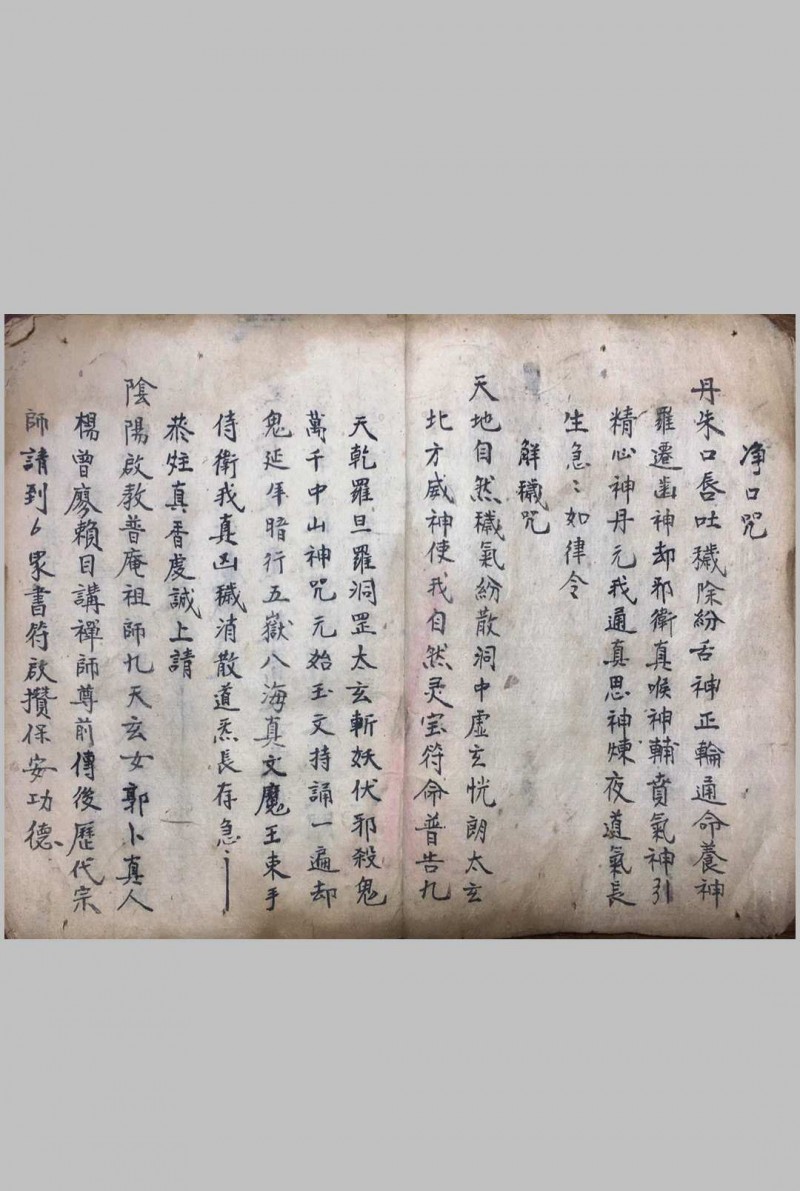 净口咒
丹朱口唇吐穢除紛舌神正輪通命養神
羅遷齒神却邪衛真喉神輔賁氣神引
精心神丹元我通真思神煉夜道氣長
生急〻如律令
解穢咒
天地自然穢氣紛散洞中虛玄恍朗太玄
北方威神使我自然灵宝符命普告九
天乾羅旦羅洞罡太玄斬妖伏邪殺鬼
萬千中山神咒元始玉文持誦一遍却
鬼延年暗行五嶽八海真文魔王束手
侍衛我真凶穢消散道炁長存急〻
炷真香虔誠上請
陰陽啟教普庵祖師九天玄女郭卜真人
楊曾廖賴目講禪師尊前傳後歷代宗
師請到書符啟攢保安功德